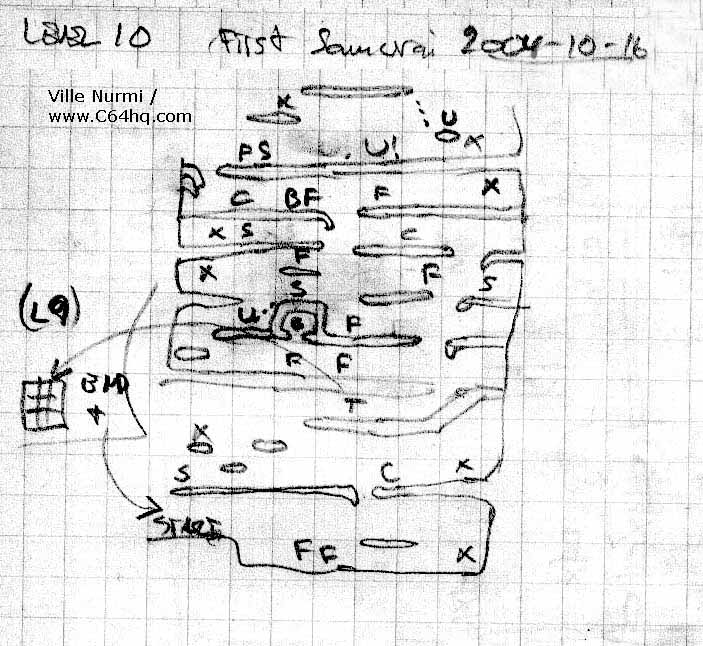 LEVEL 10 First Samurai 2004-10-16
Ville Nurmi /
www.C64hq.com
X
U
X
PS U!
X
C BF F
X S C
F
X F
S S
U F
(L9)
F F
T
X
S C X
START
F F X